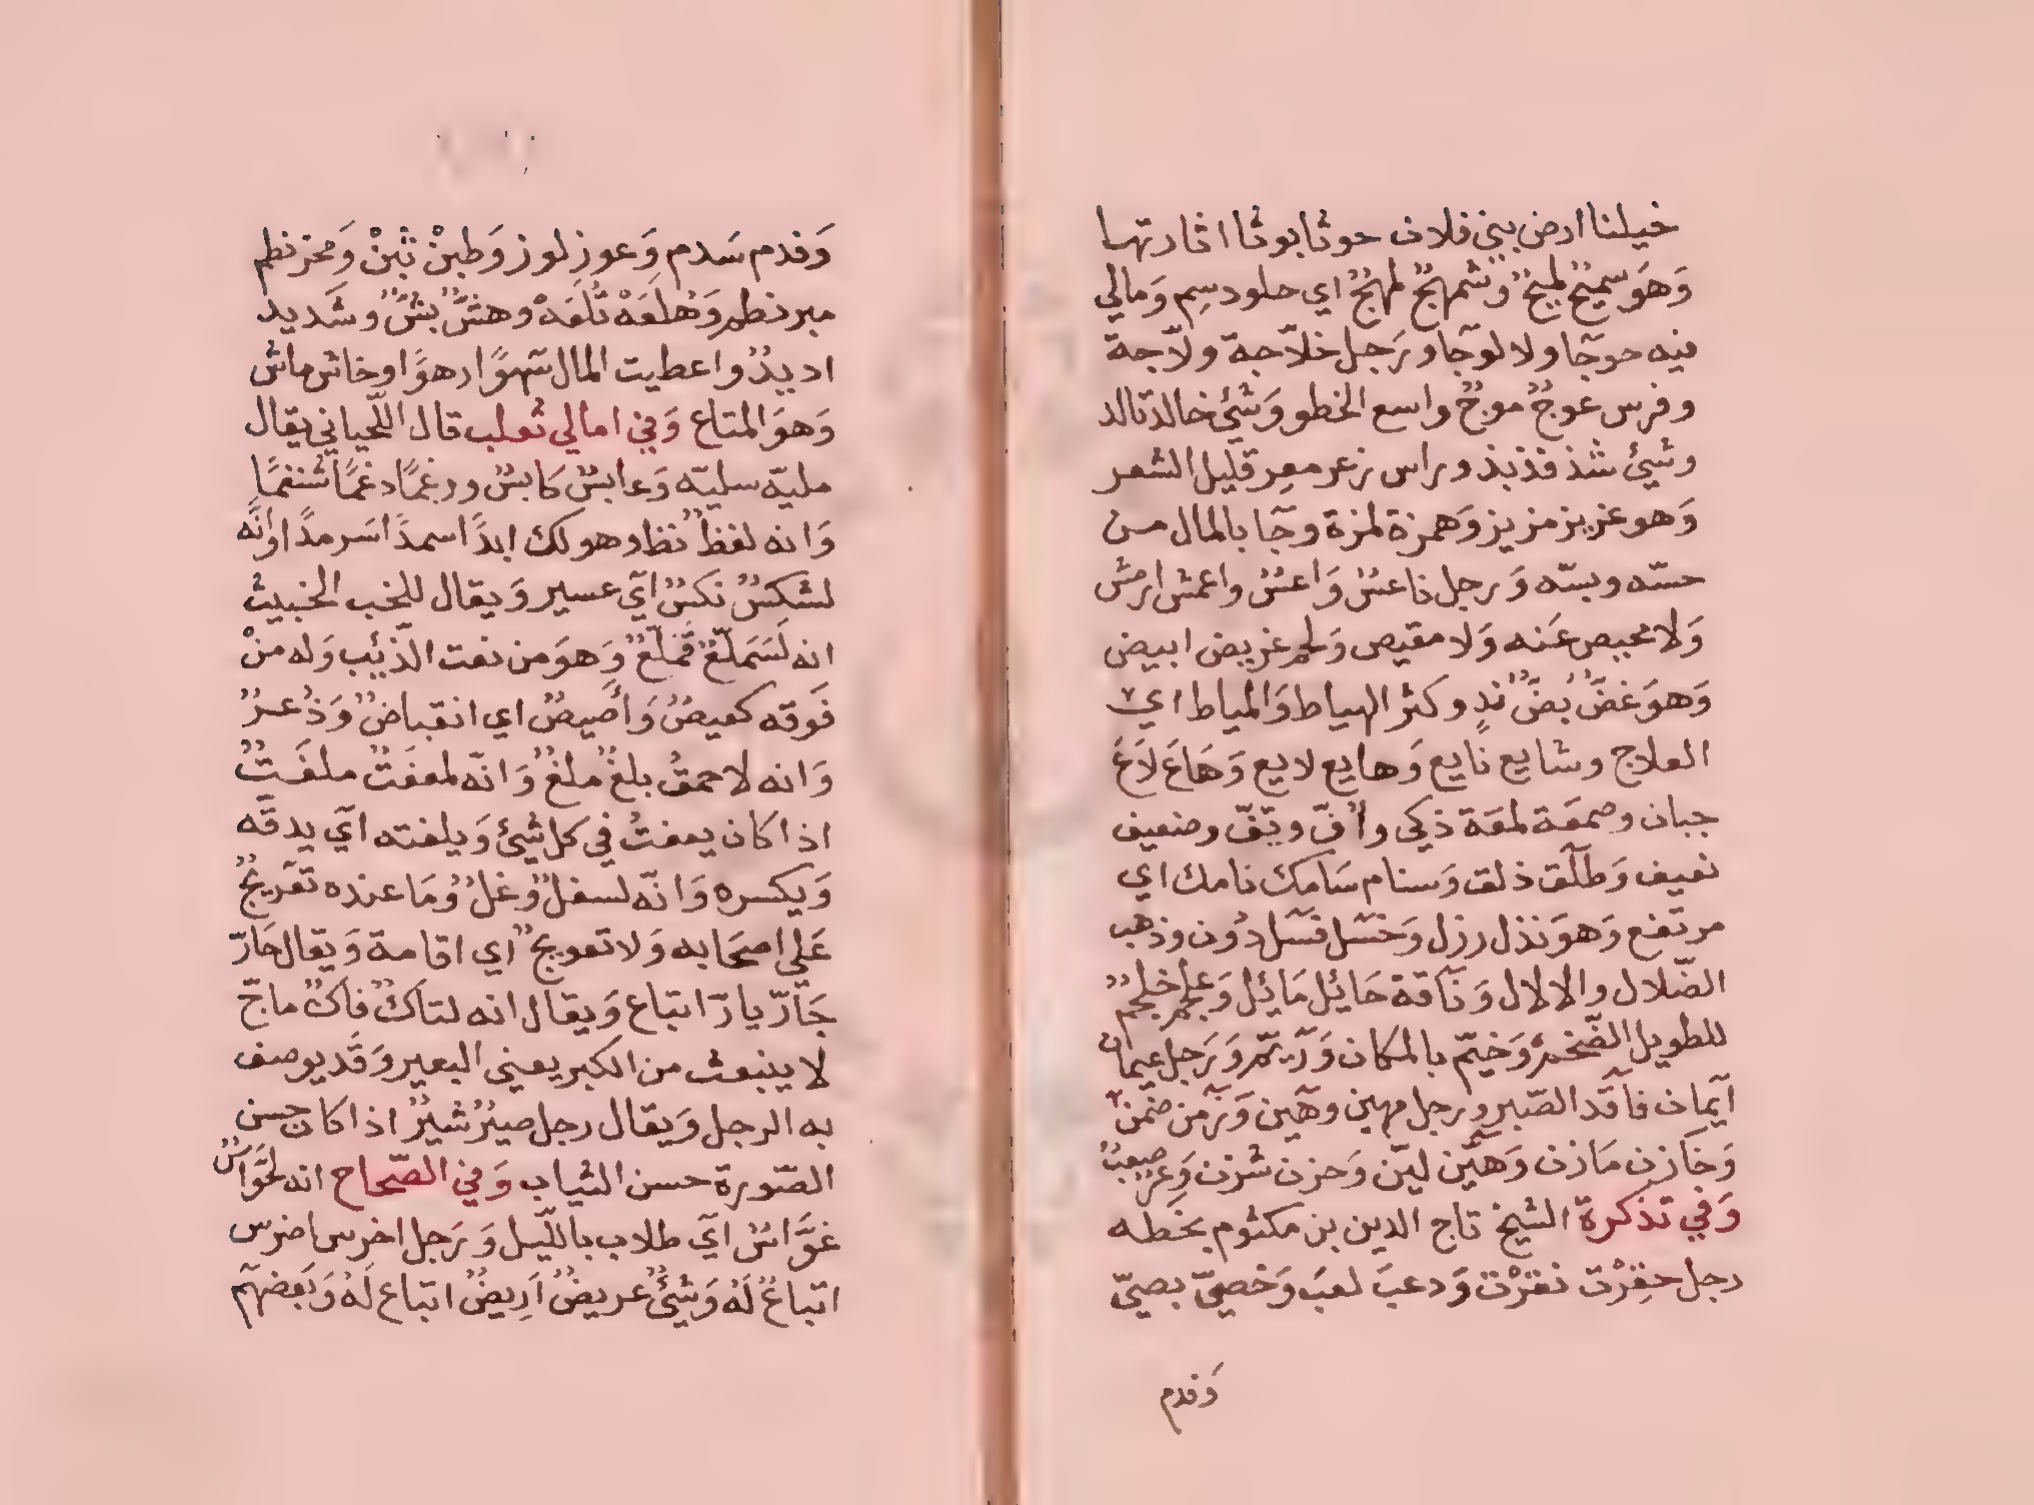 خيلنا ارض بني فلان حوثا بوثا اثارتها
وَهوَ سميجٌ لميجٌ وشمهجٌ لمهجٌ اي حلو دسِم وَمالي
فيه حوجَا ولا لوجَا ورَجل خلاّجة ولاّجة
وفرس عوجٌ موجٌ واسع الخطو وَشئ خالد تالد
وشيئ شذ فذ بذ وراس زعر معِر قليل الشعر
وَهو عزيز مزيز وَهمزة لمزة وجَا بالمال من
حسّه وبسّه وَرجل ناعسٌ وَاعسٌ واعمش ارمش
وَلا محيص عَنه وَلا مقيص وَلحم غريض ابيض
وَهوَ غضٌّ بضٌّ ندٍ وكثر الهياط وَالمياط اي
العلاج وشايع نَايع وَهايع لايع وَهَاعَ لَاعَ
جبان وصمعَة لمعَة ذكي وأُفّ وتفّ وضعيف
نعيف وَطلَق ذلق وَسنام سَامك نامك اي
مرتفع وَهوَ نذل رزل وَخسَل فسَل دُون وذهب
الضّلال والالال وَنَاقة حَائِل مَائِل وَعلجم خلجم
للطويل الضّخم وَخيّم بالمكان وَرَيّم وَرَجل عيمان
اَيمان فاقَد الصّبر ورجل مهين وهَين وَزَمن ضمن
وَخَازن مَازن وَهيّن ليّن وَحزن شزن وَعرٌ صعبٌ
وَفي تذكرة الشيخ تاج الدين بن مكتوم بخَطه
رجل حفِرْت نفرْت وَدعبَ لعبَ وَخصيّ بصيّ
وَفدم
وَفدم سَدم وَعوز لوز وَطبنْ ثبنْ وَمخرنطم
مبرنطم وَهُلَعَهْ تُلَعَهْ وهشٌّ بشٌّ وشَديد
اديدٌ واعطيت المال سَهوًا رهوًا وخاش ماش
وَهوَ المتاع وَفي امالي ثعلب قال اللّحياني يقال
مليّه سليّه وَعابسٌ كَابسٌ ورغمًا دغمًا شنغمًا
وَانه لفظٌ نظا وهو لك ابدًا سمدًا سَرمدًا وانَّه
لشكسٌ نكسٌ اَي عسير وَيقال للخب الخبيث
انه لَسَمَلّعٌ هَمَلّعٌ وَهوَ من نعت الذّئِب وَله منْ
فَوقه كعيصٌ وَأَصيصٌ اي انقباضٌ وَذُعرٌ
وَانه لاحمقٌ بلغٌ ملغٌ وَانّه لمعفتٌ ملفَتٌ
اذا كان يعفتُ في كل شيئ وَيلفته اَي يدقّه
وَيكسره وَانّه لسغلٌ وَغلٌ وَمَا عنده تعَريجٌ
عَلي اصحَابه وَلا تعويجٌ اي اقامة وَيقال حَارّ
جَارّ يارّ اتباع وَيقال انه لتاكٌّ فاكٌّ ماجّ
لا ينبعث من الكبر يعني البعير وَقَد يوصف
به الرجل وَيقال رجل صيرٌ شيرٌ اذا كان حسن
الصّورة حسن الثياب وَفي الصّحاح انه لحَوَّاسٌ
غوَّاسٌ اَي طلاب باللّيل وَرَجل اخرس اضرس
اتباعٌ لَهُ وَشيئٌ عريضٌ اَرِيضٌ اتباع لَهُ وَبَعضهم